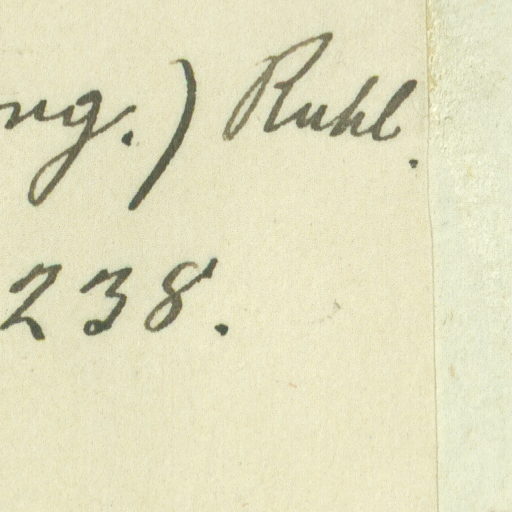 ng.) Ruhl.
238.